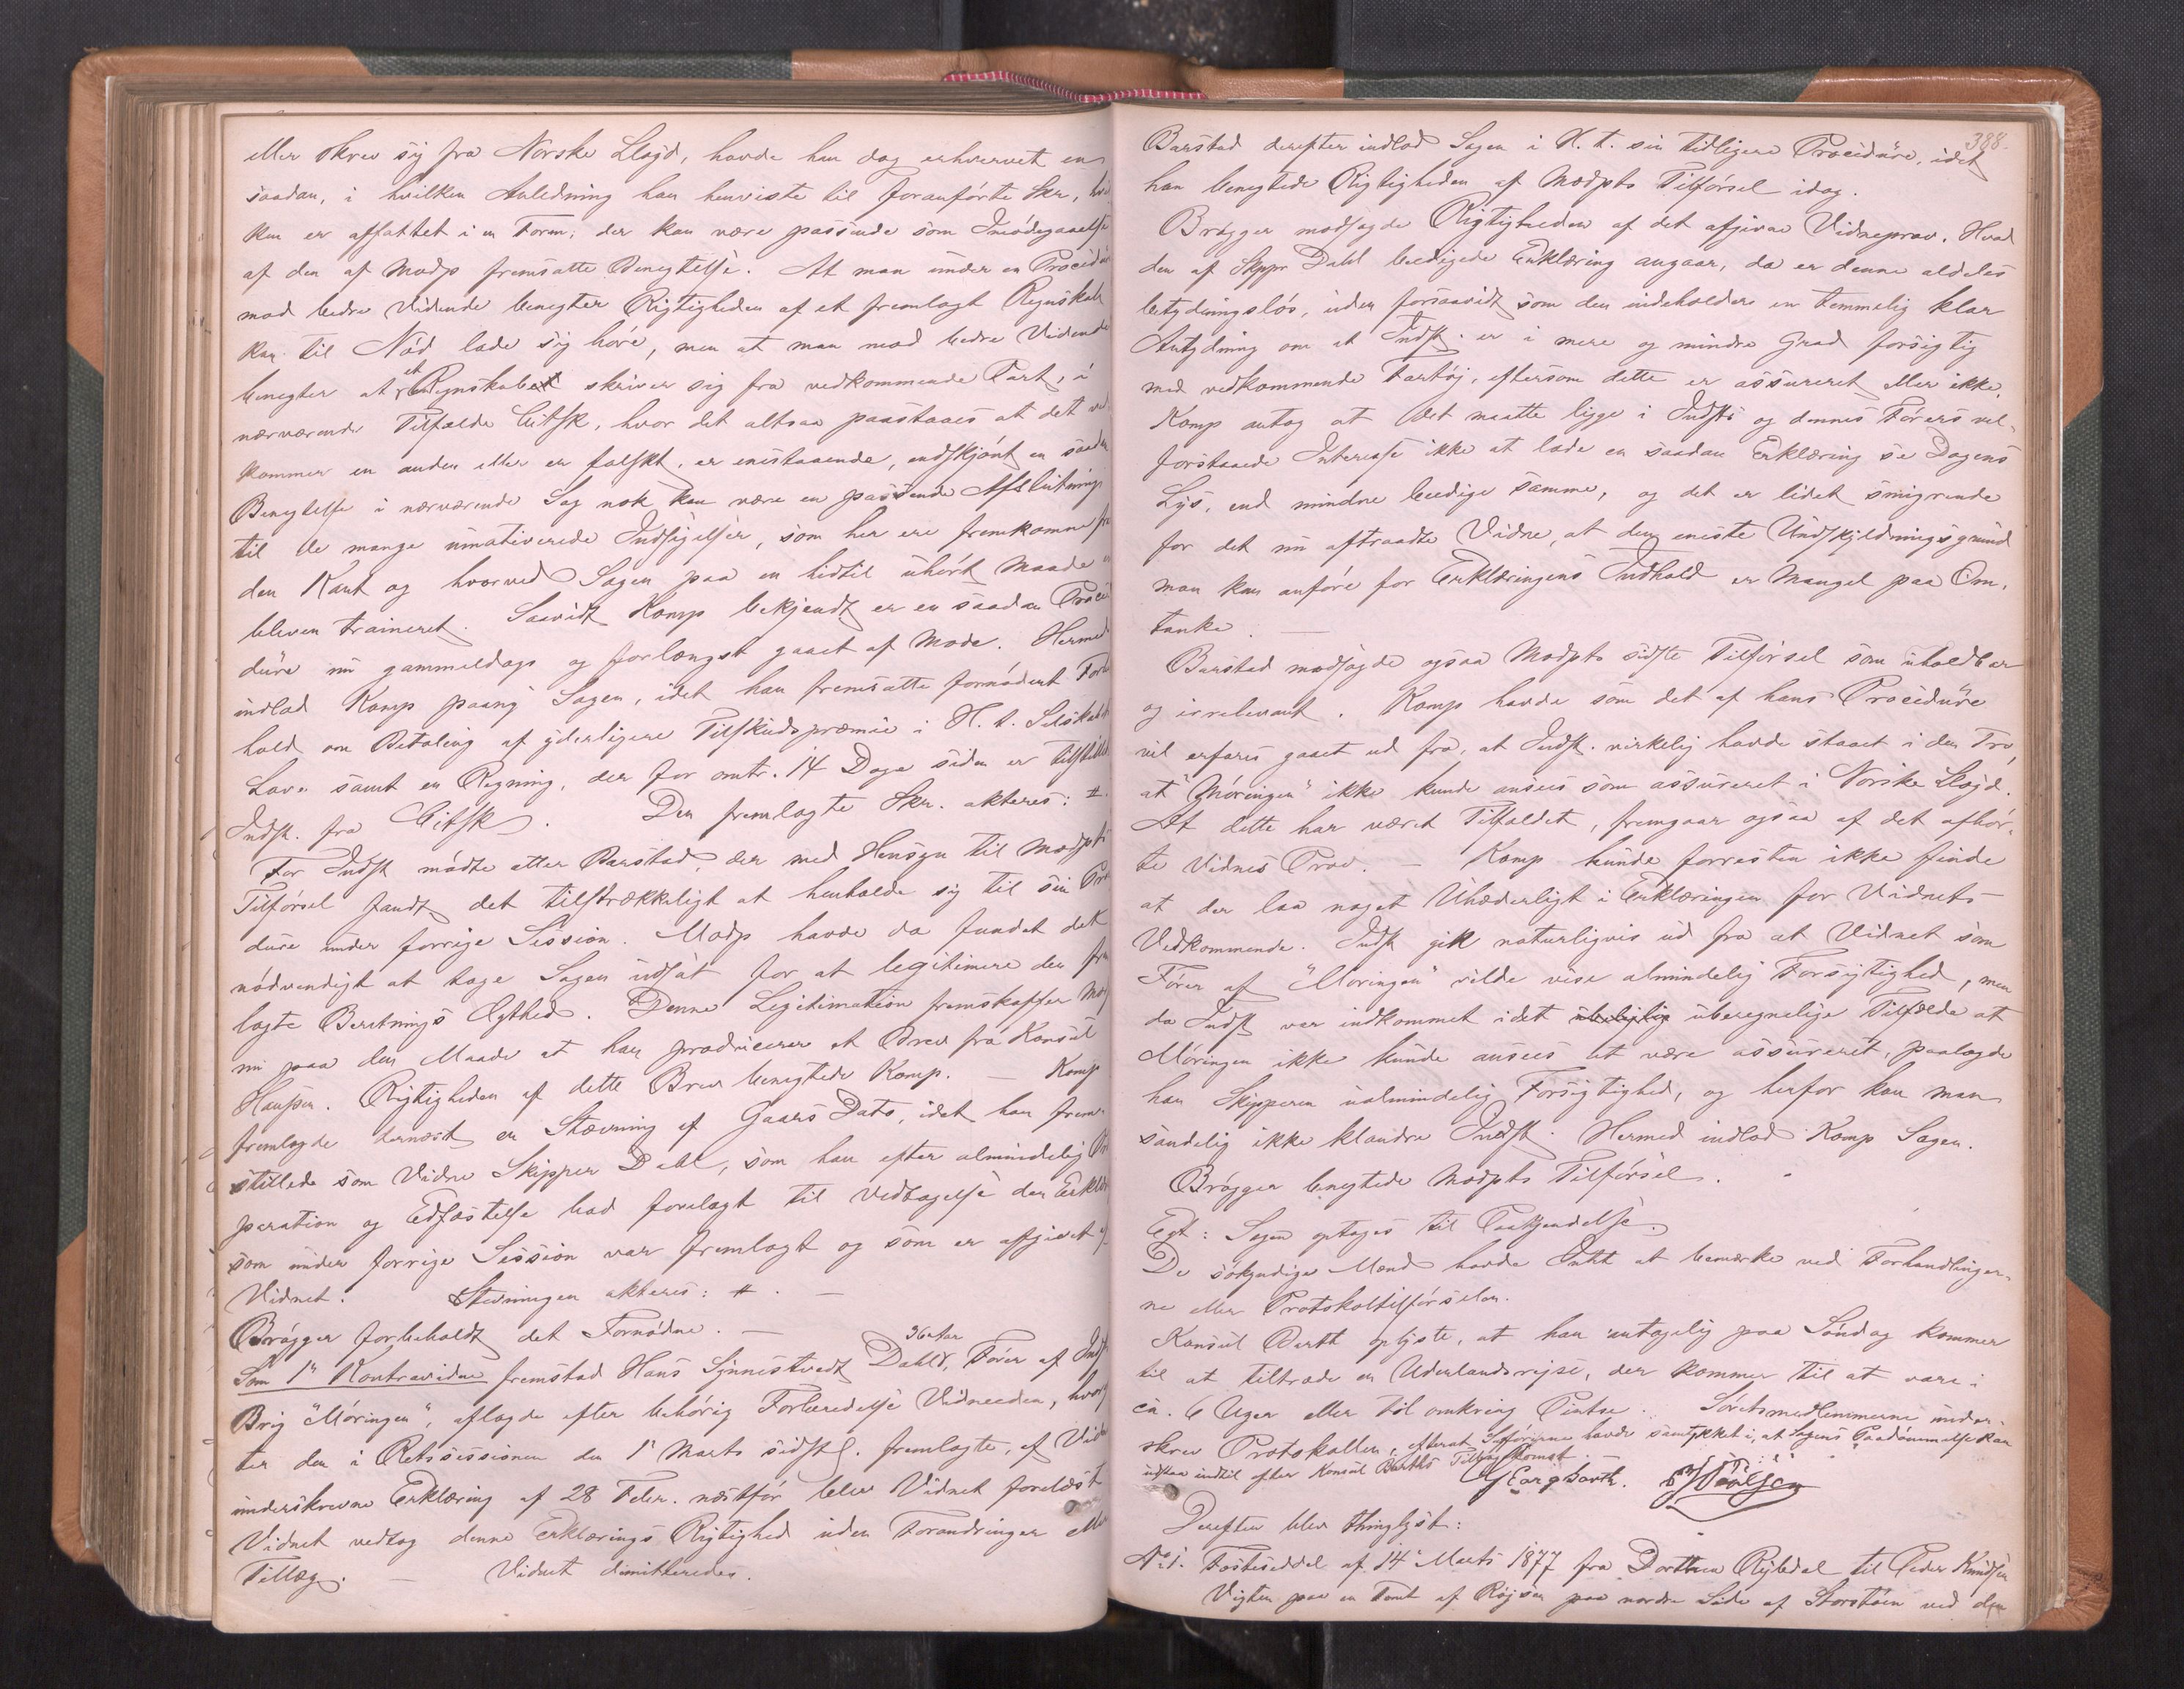 eller skrev sig fra Norske Llojd, havde han dog erhvervet en
saadan, i hvilken Anledning han henviste til foranførte Skr,
ken er affattet i en Form, der kan være passende som Imødegaaelse
af den af Modp fremsatte Benegtelse. At man under en Procedu
mod bedre Vidende benegter Rigtigheden af et fremlagt Regnskab
kan til Nød lade sig høre, men at man mod bedre Vidende
benegter at et Regnskab skriver sig fra vedkommende Part, i
nærværende Tilfælde Citsk, hvor det altsaa paastaaes at det ved
kommer en anden eller er falskt, er enestaaende, endskjønt en saadan
Benegtelse i nærværende Sag nok kan være en passende Afslutning
til de mange umotiverede Indsigelser, som her ere fremkomne fra
den Kant og hvorved Sagen paa en hidtil uhørt Maade er
bleven traineret. Saavidt Komp bekjendt er en saadan Proce
dure nu gammeldags og forlængst gaaet af Mode. Hermed
indlod Komp paany Sagen, idet han fremsatte fornødent Forbe
hold om Betaling af yderligere Tilskudspræmie i H. t. Selskabets
Love samt en Regning, der for omtr. 14 Dage siden er tilstillet
Indst. fra Citsk. Den fremlagte Skr. akteres: #.
For Indst mødte atter Barstad, der med Hensyn til Modpts
Tilførsel fandt det tilstrækkeligt at henholde sig til sin Proce
dure under forrige Session. Modp havde da fundet det
nødvendigt at tage Sagen udsat for at legitimere den frem
lagte Beretnings Ægthed. Denne Legitimation fremskaffer Modp
nu paa den Maade at han producerer et Brev fra Konsul
Hansen. Rigtigheden af dette Brev benegtede Komp. — Komp
fremlagde dernæst en Stævning af Gaars Dato, idet han frem-
stillede som Vidne Skipper Dahl, som han efter almindelig Præ
paration og Edfæstelse bad forelagt til Vedtagelse den Erklæring
som under forrige Session var fremlagt og som er afgivet af
Vidnet. Stevningen akteres: #. —
Brøgger forbeholdt det Fornødne. —
Som 1ste Kontravidne fremstod Hans Synnestvedt Dahl, 36 Aar, Fører af Indst
Brig "Møringen", aflagde efter behørig Forberedelse Vidneeden, hvoref
ter den i Retssessionen den 1ste Marts sidstl. fremlagte, af Vidnet
underskrevne Erklæring af 28 Febr. næstfør blev Vidnet forelæst
Vidnet vedtog denne Erklærings Rigtighed uden Forandringer eller
Tillæg. — Vidnet dimitteredes.
388.
Barstad derefter indlod Sagen i H. t. sin tidligere Procedure, idet
han benegtede Rigtigheden af Modpts Tilførsel idag.
Brøgger modsagde Rigtigheden af det afgivne Vidneprov. Hvad
den af Skppr Dahl beedigede Erklæring angaar, da er denne aldeles
betydningsløs, uden forsaavidt som den indeholder en temmelig klar
Antydning om at Indst. er i mere og mindre Grad forsigtig
med vedkommende Fartøj, eftersom dette er assureret eller ikke.
Komp antog at det maatte ligge i Indsts og dennes Førers vel-
forstaaede Interesse ikke at lade en saadan Erklæring se Dagens
Lys, end mindre beedige samme, og det er lidet smigrende
for det nu aftraadte Vidne, at den eneste Undskyldningsgrund
man kan anføre for Erklæringens Indhold er Mangel paa Om-
tanke. —
Barstad modsagde ogsaa Modpts sidste Tilførsel som uholdbar
og irrelevant. Komp havde som det af hans Procedure
vil erfares gaaet ud fra, at Indst. virkelig havde staaet i den Tro,
at "Møringen" ikke kunde ansees som assureret i Norske Llojd.
At dette har været Tilfældet, fremgaar ogsaa af det afhør-
te Vidnes Prov. — Komp kunde forresten ikke finde
at der laa noget Uhæderligt i Erklæringen for Vidnets
Vedkommende. Indst gik naturligvis ud fra at Vidnet som
Fører af "Møringen" vilde vise almindelig Forsigtighed, men
da Indst var indkommet i det uberegnelige Tilfælde at
Møringen ikke kunde ansees at være assureret, paalagde
han Skipperen ualmindelig Forsigtighed, og herfor kan man
sandelig ikke klandre Indst. Hermed indlod Komp Sagen.
Brøgger benegtede Modpts Tilførsel.
Egt: Sagen optages til Paakjendelse.
De søkyndige Mænd havde Intet at bemærke ved Forhandlinger-
ne eller Protokoltilførselen.
Konsul Barth oplyste, at han antagelig paa Søndag kommer
til at tiltræde en Udenlandsrejse, der kommer til at vare i
ca. 6 Uger eller til omkring Pintse. Søretsmedlemmerne under-
skrev Protokollen, efterat Sagførerne havde samtykket i, at Sagens Paadømmelse kan
udstaa indtil efter Konsul Barths Tilbagekomst.
Georg Barth.
Derefter blev thinglyst:
No 1. Festeseddel af 14 Marts 1877 fra Dorthea Rybdal til Peder Knudsen
Vigten paa en Tomt af Røjsen paa nordre Side af Storstøen ved den